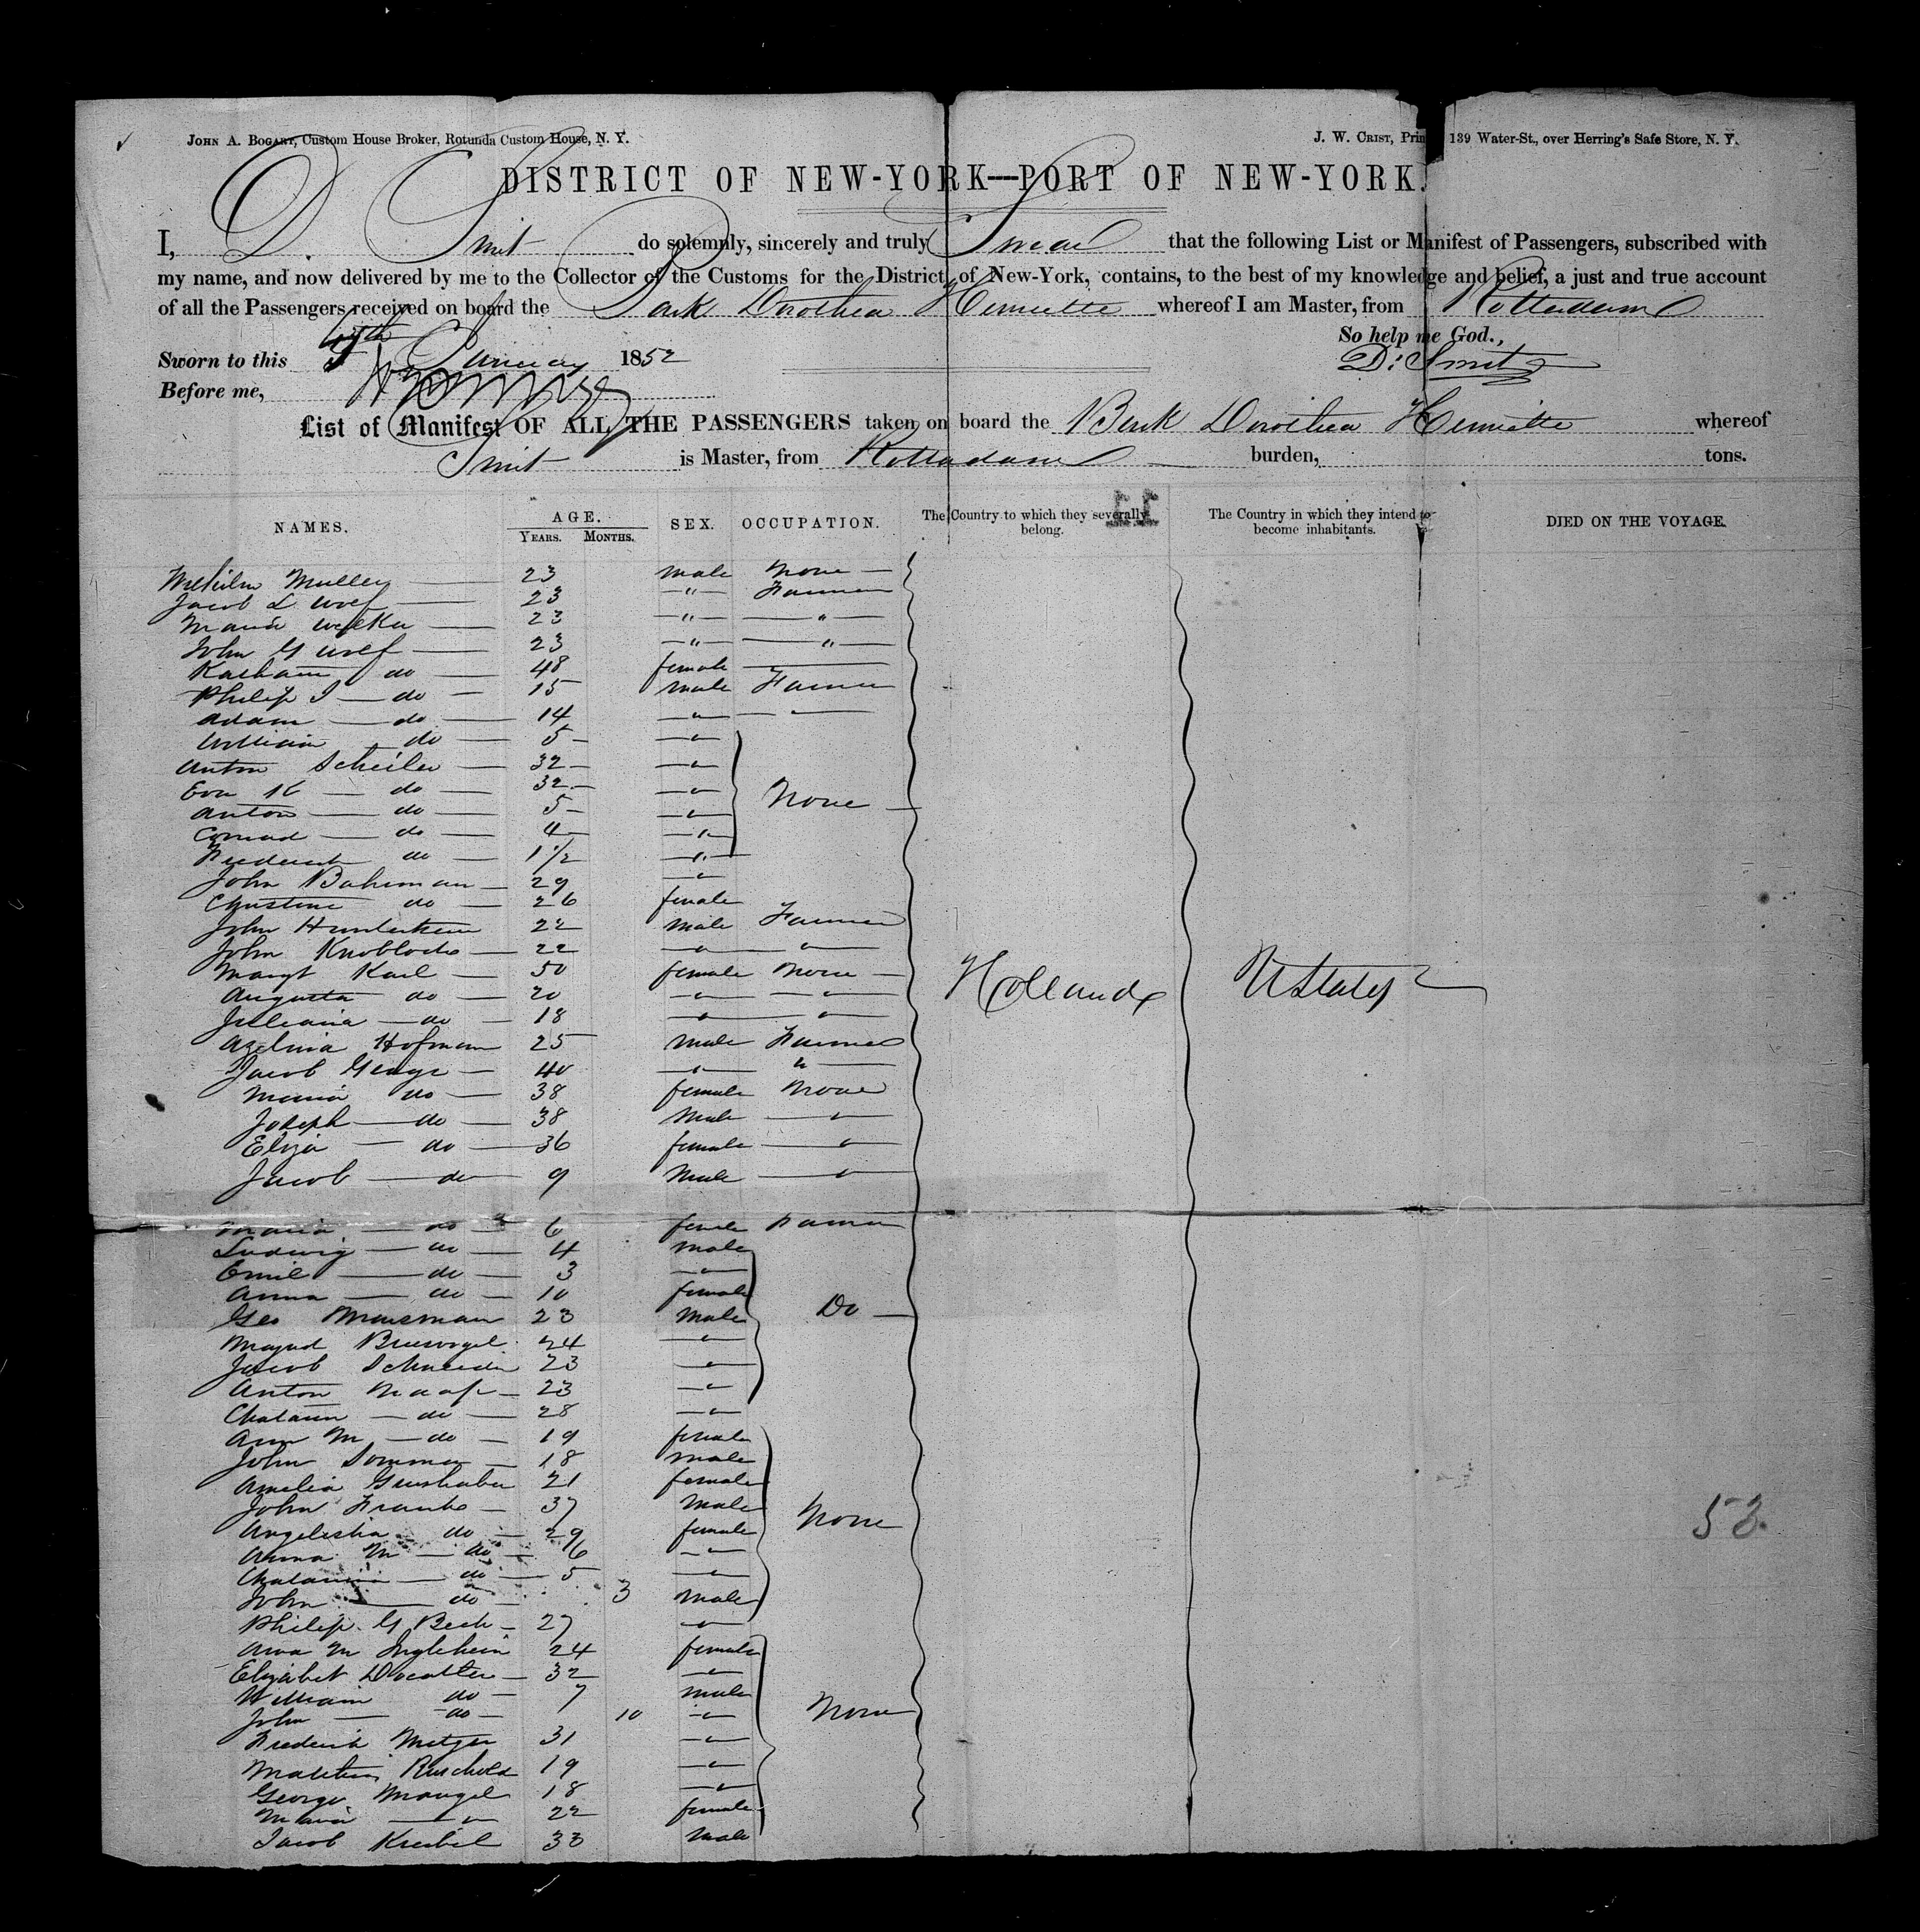 JOHN A. BOGART, Custom House Broker, Rotunda Custom House, N. Y.
J. W. CRIST, Prin 139 Water-St., over Herring's Safe Store, N. Y.
DISTRICT OF NEW-YORK—PORT OF NEW-YORK.
I, D. Smit do solemnly, sincerely and truly Swear that the following List or Manifest of Passengers, subscribed with
my name, and now delivered by me to the Collector of the Customs for the District of New-York, contains, to the best of my knowledge and belief, a just and true account
of all the Passengers received on board the Bark Dorothea Henriette whereof I am Master, from Rotterdam
So help me God.,
Sworn to this January 1852
D: Smit
Before me,
List of Manifest OF ALL THE PASSENGERS taken on board the Bark Dorothea Henriette whereof
Smit is Master, from Rotterdam burden, tons.
NAMES. AGE. SEX. OCCUPATION. The Country to which they severally belong. The Country in which they intend to become inhabitants. DIED ON THE VOYAGE.
YEARS. MONTHS.
Muller 23 male None
Jacob L Wolf 23 " Farmer
23 " "
John G Wolf 23 " "
do 48 female
Philip J do 15 male Farmer
Adam do 14 " "
William do 5 "
Anton Scheiler 32 "
Eva K do 32 " None
Anton do 5 "
Conrad do 4 "
Frederick do 1 1/2 "
John Bahrman 29 "
Christine do 26 female
John 22 male Farmer
John Knobloch 22 " "
Margt Karl 50 female None
Augusta do 20 " "
Juliana do 18 " "
Hofman 25 male Farmer
Jacob George 40 " "
Maria do 38 female None
Joseph do 38 Male "
Eliza do 36 female "
Jacob do 9 Male "
Holland U States
Maria do 6 female Farmer
Ludwig do 4 male
Emil do 3 "
Anna do 10 female
Geo Mausman 23 Male Do
24 "
Jacob Schneider 23 "
Anton Maass 23 "
do 28 "
Ann M do 19 female
John Sommer 18 male
Amelia 21 female
John Franks 37 Male
do 29 female None
Anna M do 6 "
do 5 "
John do 3 Male
Philip G Beck 27 "
Anna M Ingleheim 24 female
Elizabet 32 "
William do 7 male
John do 10 " None
Frederick Metzger 31 "
19 "
George Mangel 18 "
Maria " 22 female
Jacob Kreibel 33 Male
53.